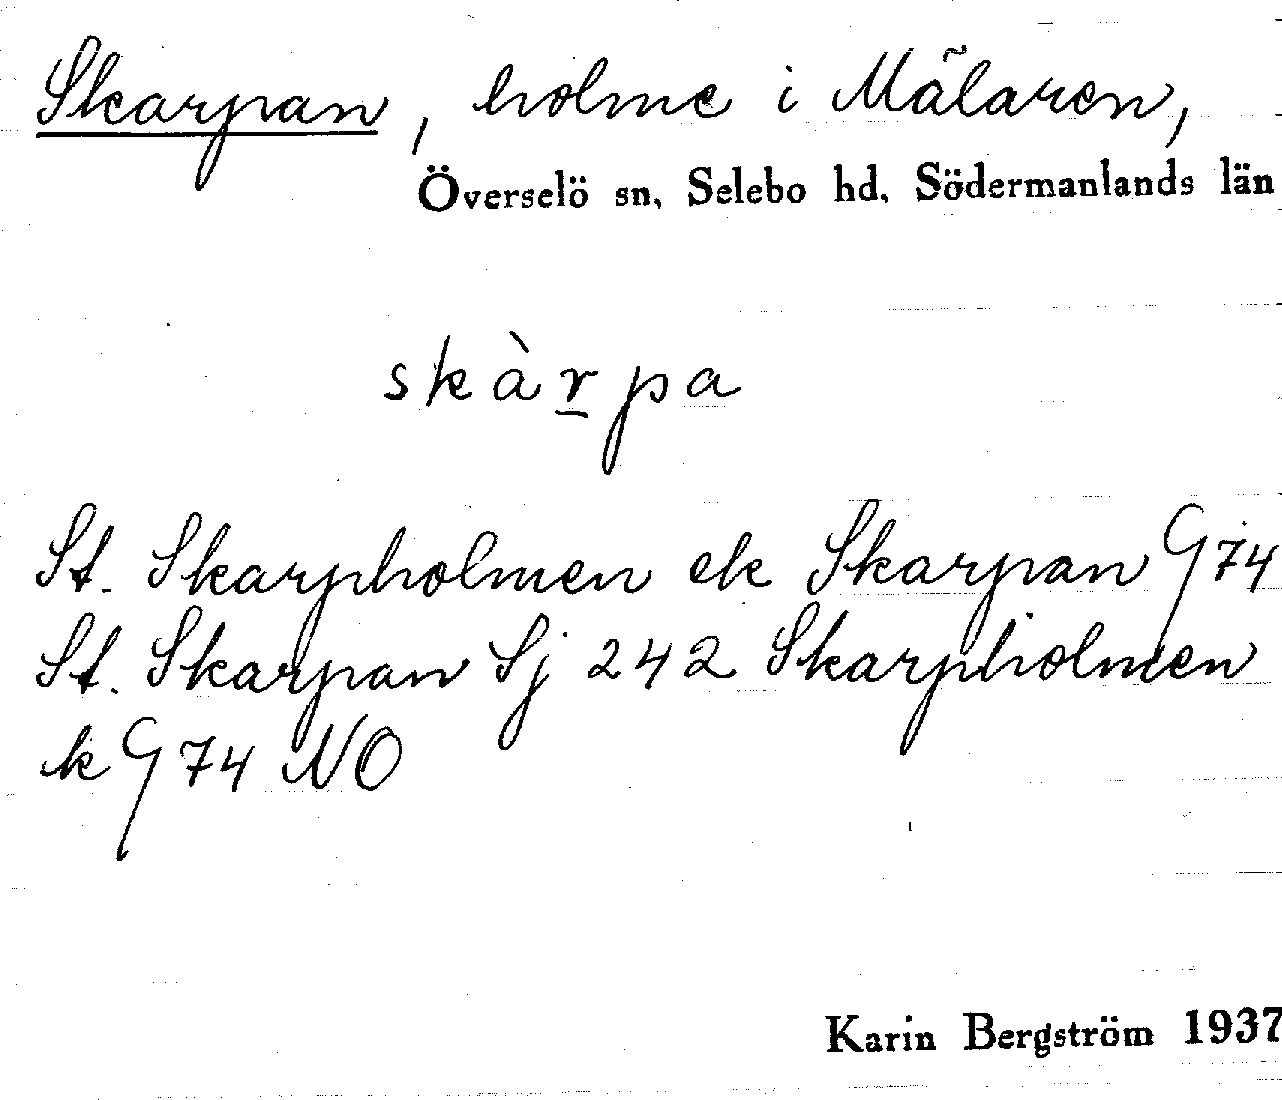 Skarpan, holme i Mälaren,
Överselö sn, Selebo hd, Södermanlands län
skàr̲pa
St. Skarpholmen ek Skarpan G 74
St. Skarpan Sj 242 Skarpholmen
k G 74 NO
Karin Bergström 1937